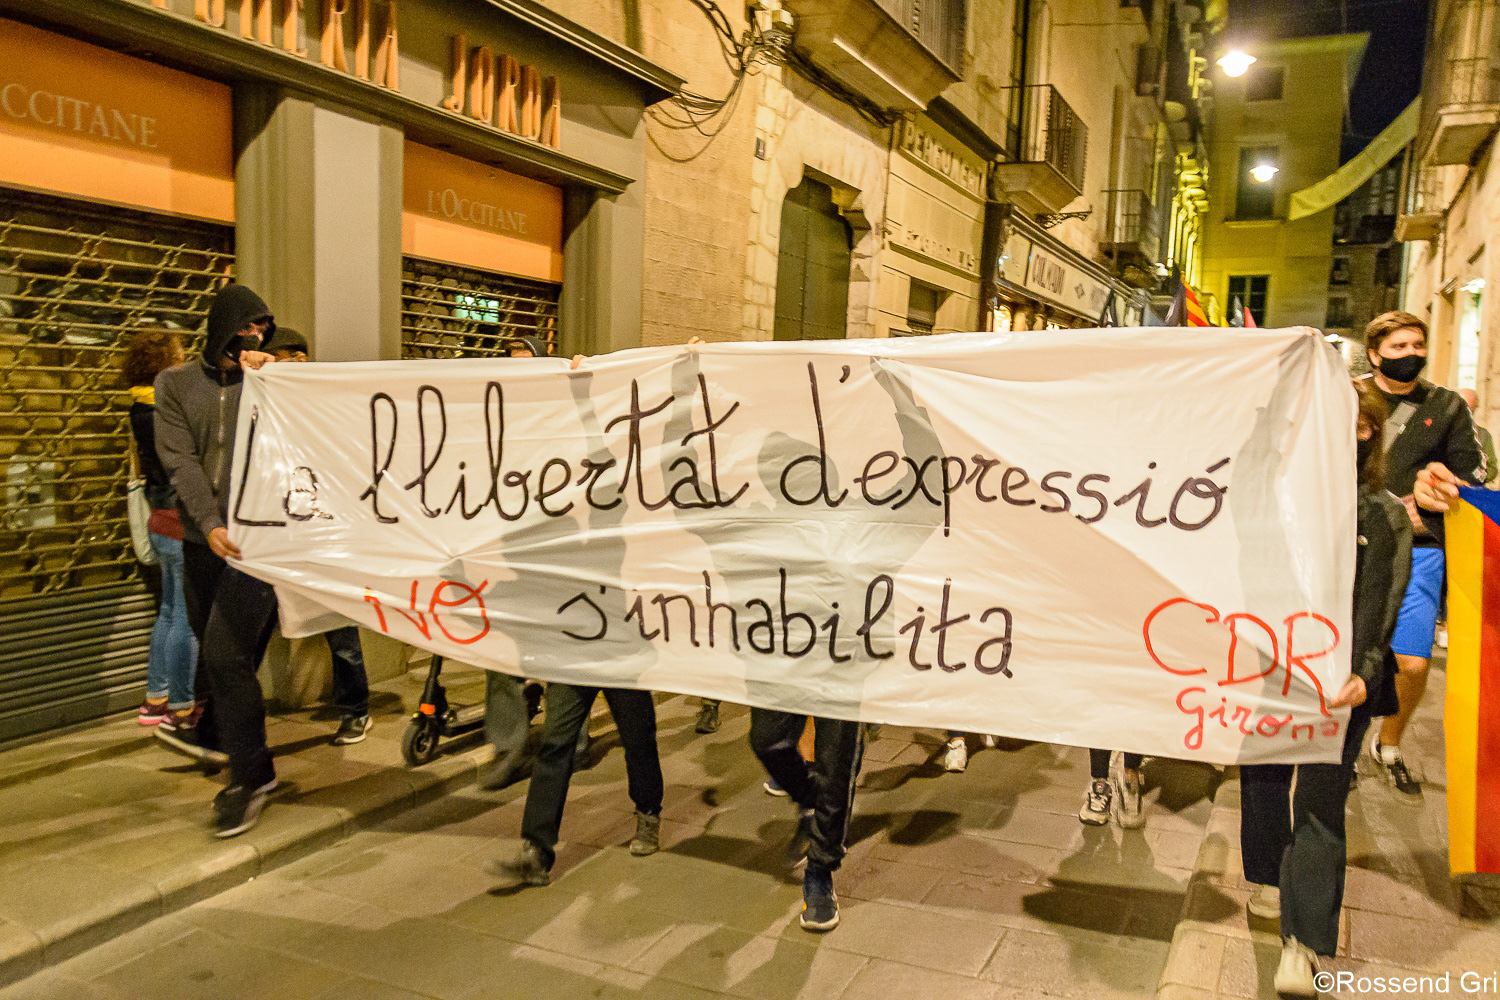 JORDA
OCCITANE
L'OCCITANE
La llibertat d'expressió
NO s'inhabilita
CDR
Girona
©Rossend Gri